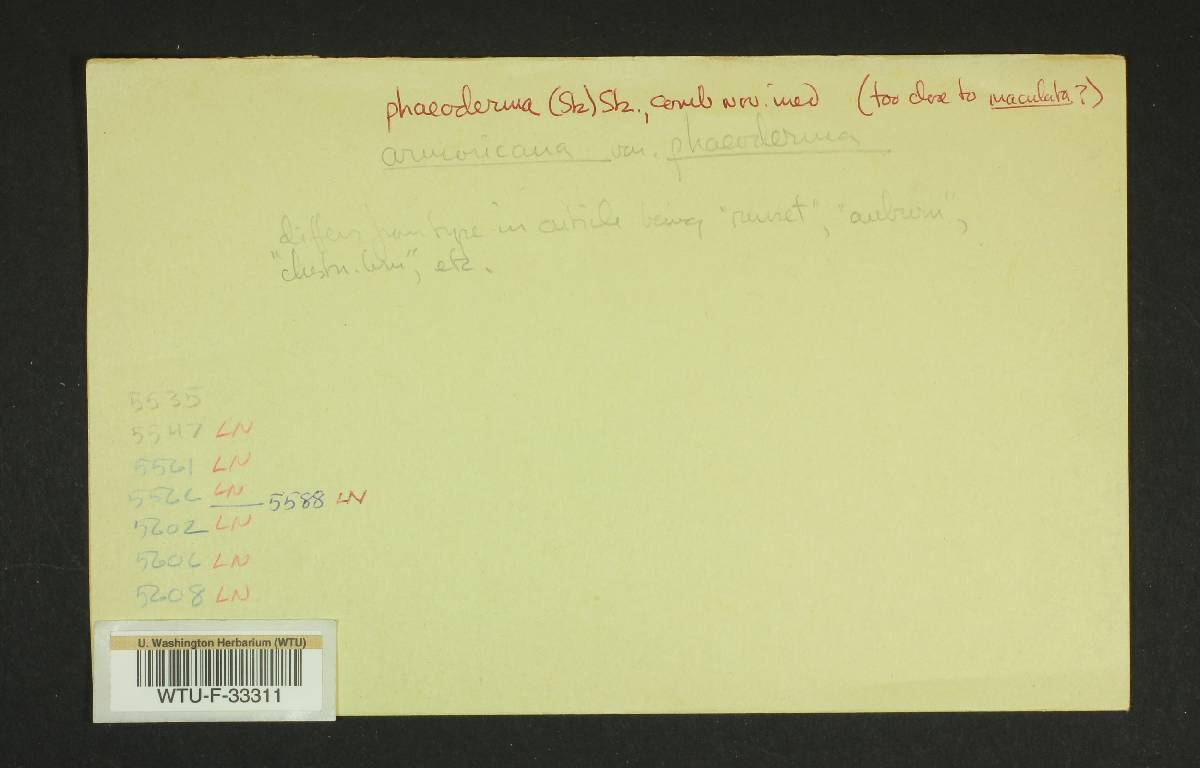 phaeoderma (Stz) Stz., comb nov. ined (too close to maculata?)
armoricana var. phaeoderma
differs from type in cuticle being "russet", "auburn",
"chestn. brn", etc.
5535
5547 LN
5561 LN
5566 LN 5588 LN
5602 LN
5606 LN
5608 LN
U. Washington Herbarium (WTU)
WTU-F-33311